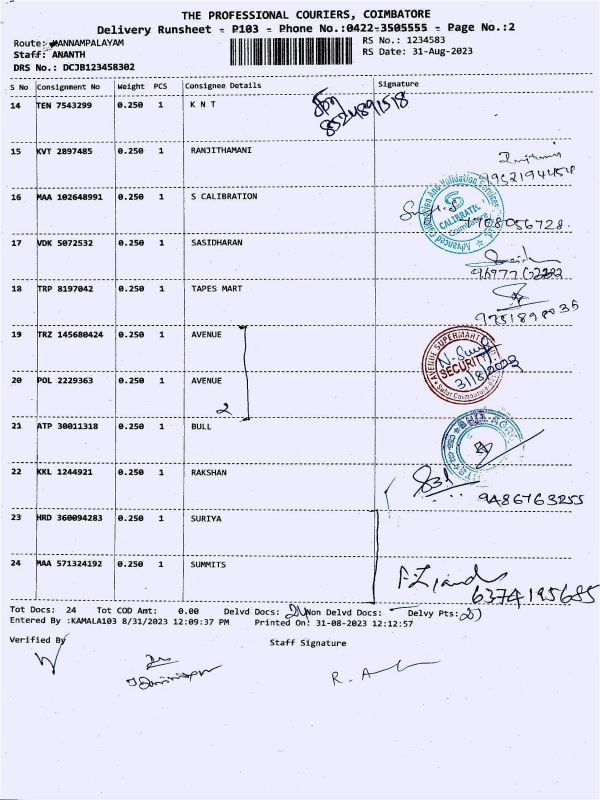 THE PROFESSIONAL COURIERS, COIMBATORE
Delivery Runsheet - P103 - Phone No.:0422-3505555 - Page No.:2
Route: MANNAMPALAYAM
RS No.: 1234583
Staff: ANANTH
RS Date: 31-Aug-2023
DRS No.: DCJB123458302
S No Consignment No Weight PCS Consignee Details Signature
14 TEN 7543299 0.250 1 K N T
8524891518
15 KVT 2897485 0.250 1 RANJITHAMANI
16 MAA 102648991 0.250 1 S CALIBRATION
Advanced Calibration And Validation Services
CALIBRATION
Coimbatore
17 VDK 5072532 0.250 1 SASIDHARAN
18 TRP 8197042 0.250 1 TAPES MART
19 TRZ 145680424 0.250 1 AVENUE
AVENUE SUPERMART
SECURITY
31/8/2023
20 POL 2229363 0.250 1 AVENUE
2
21 ATP 30011318 0.250 1 BULL
22 KKL 1244921 0.250 1 RAKSHAN
9486763255
23 HRD 360094283 0.250 1 SURIYA
24 MAA 571324192 0.250 1 SUMMITS
6374195685
Tot Docs: 24 Tot COD Amt: 0.00 Delvd Docs: 24 Non Delvd Docs: Delvy Pts:
Entered By :KAMALA103 8/31/2023 12:09:37 PM Printed On: 31-08-2023 12:12:57
Verified By Staff Signature